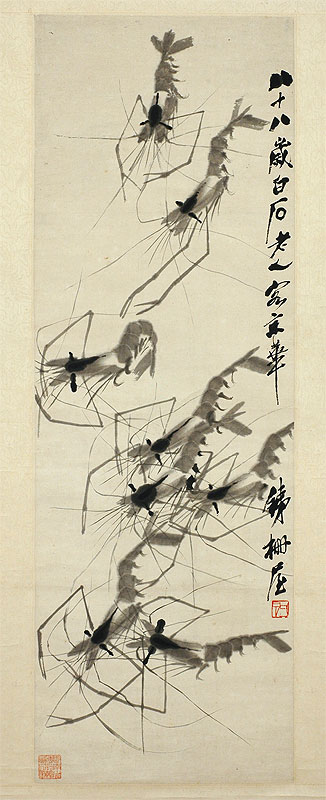 八十八歲白石老人客京華
鐵柵屋